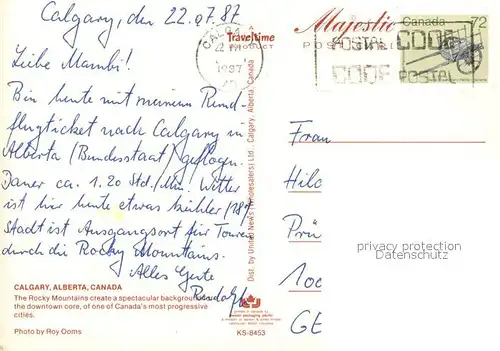 Calgary, den 22.07.87
Liebe Mambi!
Bin heute mit meinem Rund-
flugticket nach Calgary in
Alberta (Bundesstaat) geflogen.
Dauer ca. 1.20 Std./Min. Wetter
ist hier heute etwas kühler (18°)
Stadt ist Ausgangsort für Touren
durch die Rocky Mountains.
Alles Gute
Rudolf
CALGARY, ALBERTA, CANADA
The Rocky Mountains create a spectacular background
the downtown core, of one of Canada's most progressive
cities.
Photo by Roy Ooms
KS-8453
Traveltime
A PRODUCT
Dist. by United News (Wholesalers) Ltd., Calgary, Alberta, Canada
CALGARY
22 VII
1987
Majestic
Canada 72
POSTAL CODE
CODE POSTAL
Frau
Hilo
Prü
100
GE
privacy protection
Datenschutz